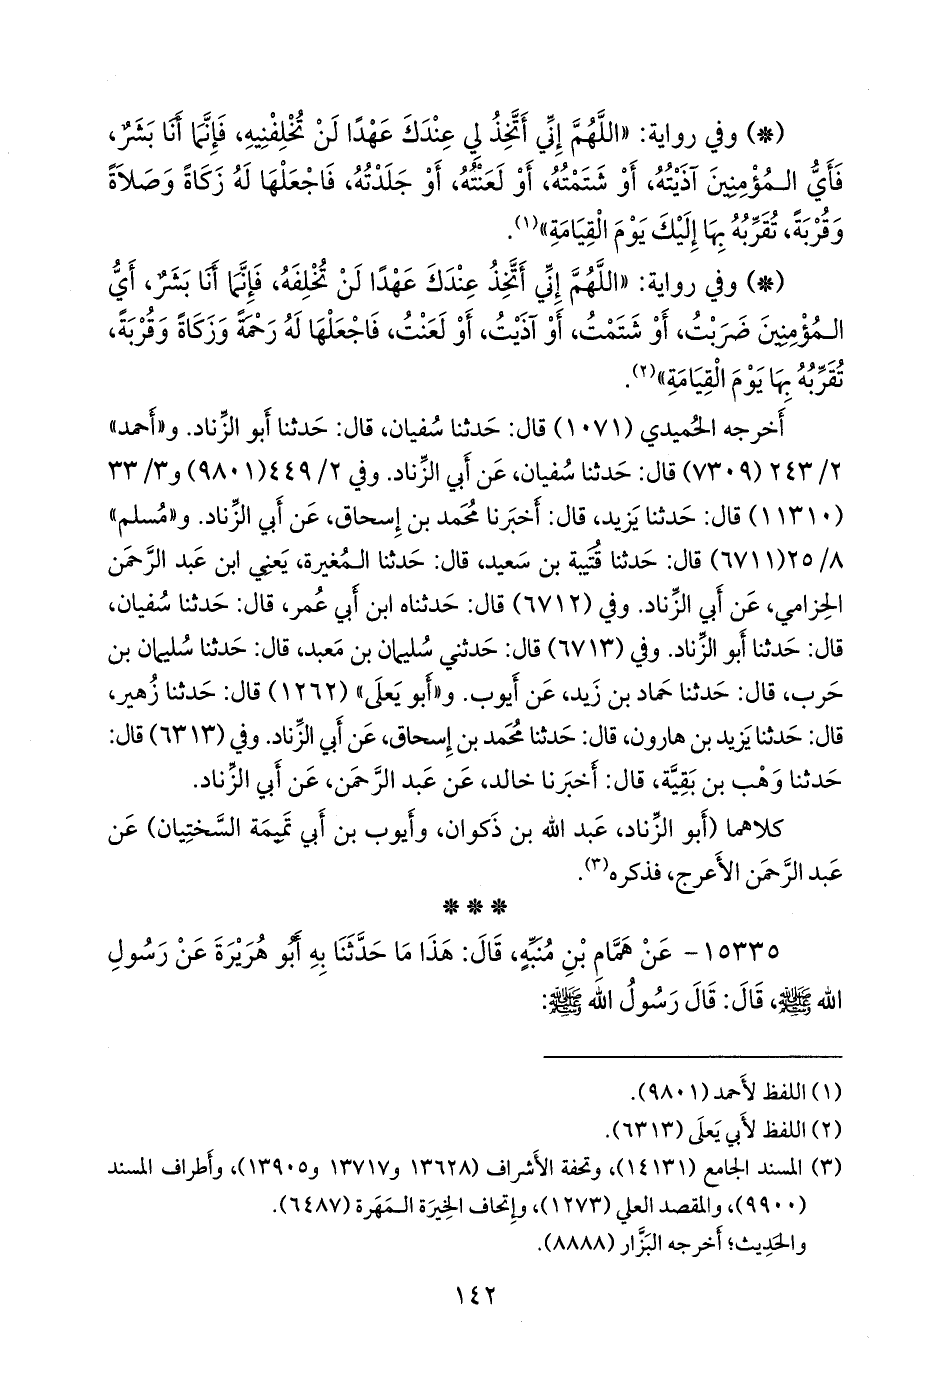 (*) وفي رواية: «اللَّهُمَّ إِنِّي أَتَّخِذُ لِي عِنْدَكَ عَهْدًا لَنْ تُخْلِفْنِيهِ، فَإِنَّمَا أَنَا بَشَرٌ،
فَأَيُّ الـمُؤْمِنِينَ آذَيْتُهُ، أَوْ شَتَمْتُهُ، أَوْ لَعَنْتُهُ، أَوْ جَلَدْتُهُ، فَاجْعَلْهَا لَهُ زَكَاةً وَصَلاَةً
وَقُرْبَةً، تُقَرِّبُهُ بِهَا إِلَيْكَ يَوْمَ الْقِيَامَةِ»(١).
(*) وفي رواية: «اللَّهُمَّ إِنِّي أَتَّخِذُ عِنْدَكَ عَهْدًا لَنْ تُخْلِفَهُ، فَإِنَّمَا أَنَا بَشَرٌ، أَيُّ
الـمُؤْمِنِينَ ضَرَبْتُ، أَوْ شَتَمْتُ، أَوْ آذَيْتُ، أَوْ لَعَنْتُ، فَاجْعَلْهَا لَهُ رَحْمَةً وَزَكَاةً وَقُرْبَةً،
تُقَرِّبُهُ بِهَا يَوْمَ الْقِيَامَةِ»(٢).
أَخرجه الحُميدي (١٠٧١) قال: حَدثنا سُفيان، قال: حَدثنا أَبو الزِّناد. و«أَحمد»
٢/ ٢٤٣ (٧٣٠٩) قال: حَدثنا سُفيان، عَن أَبي الزِّناد. وفي ٢/ ٤٤٩(٩٨٠١) و٣/ ٣٣
(١١٣١٠) قال: حَدثنا يَزيد، قال: أَخبَرنا مُحَمد بن إِسحاق، عَن أَبي الزِّناد. و«مُسلم»
٨/ ٢٥(٦٧١١) قال: حَدثنا قُتَيبة بن سَعيد، قال: حَدثنا الـمُغيرة، يَعني ابن عَبد الرَّحمَن
الحِزامي، عَن أَبي الزِّناد. وفي (٦٧١٢) قال: حَدثناه ابن أَبي عُمر، قال: حَدثنا سُفيان،
قال: حَدثنا أَبو الزِّناد. وفي (٦٧١٣) قال: حَدثني سُليمان بن مَعبد، قال: حَدثنا سُليمان بن
حَرب، قال: حَدثنا حَماد بن زَيد، عَن أَيوب. و«أَبو يَعلَى» (١٢٦٢) قال: حَدثنا زُهير،
قال: حَدثنا يَزيد بن هارون، قال: حَدثنا مُحَمد بن إِسحاق، عَن أَبي الزِّناد. وفي (٦٣١٣) قال:
حَدثنا وَهْب بن بَقِيَّة، قال: أَخبَرنا خالد، عَن عَبد الرَّحمَن، عَن أَبي الزِّناد.
كلاهما (أَبو الزِّناد، عَبد الله بن ذَكوان، وأَيوب بن أَبي تَمِيمَة السَّختِيان) عَن
عَبد الرَّحمَن الأَعرج، فذكره(٣).
* * *
١٥٣٣٥- عَنْ هَمَّامِ بْنِ مُنَبِّهٍ، قَالَ: هَذَا مَا حَدَّثَنَا بِهِ أَبُو هُرَيْرَةَ عَنْ رَسُولِ
الله ﷺ، قَالَ: قَالَ رَسُولُ الله ﷺ:
(١) اللفظ لأَحمد (٩٨٠١).
(٢) اللفظ لأَبي يَعلَى (٦٣١٣).
(٣) المسند الجامع (١٤١٣١)، وتحفة الأَشراف (١٣٦٢٨ و١٣٧١٧ و١٣٩٠٥)، وأَطراف المسند
(٩٩٠٠)، والمقصد العلي (١٢٧٣)، وإِتحاف الخِيرَة الـمَهَرة (٦٤٨٧).
والحَدِيث؛ أَخرجه البَزَّار (٨٨٨٨).
١٤٢